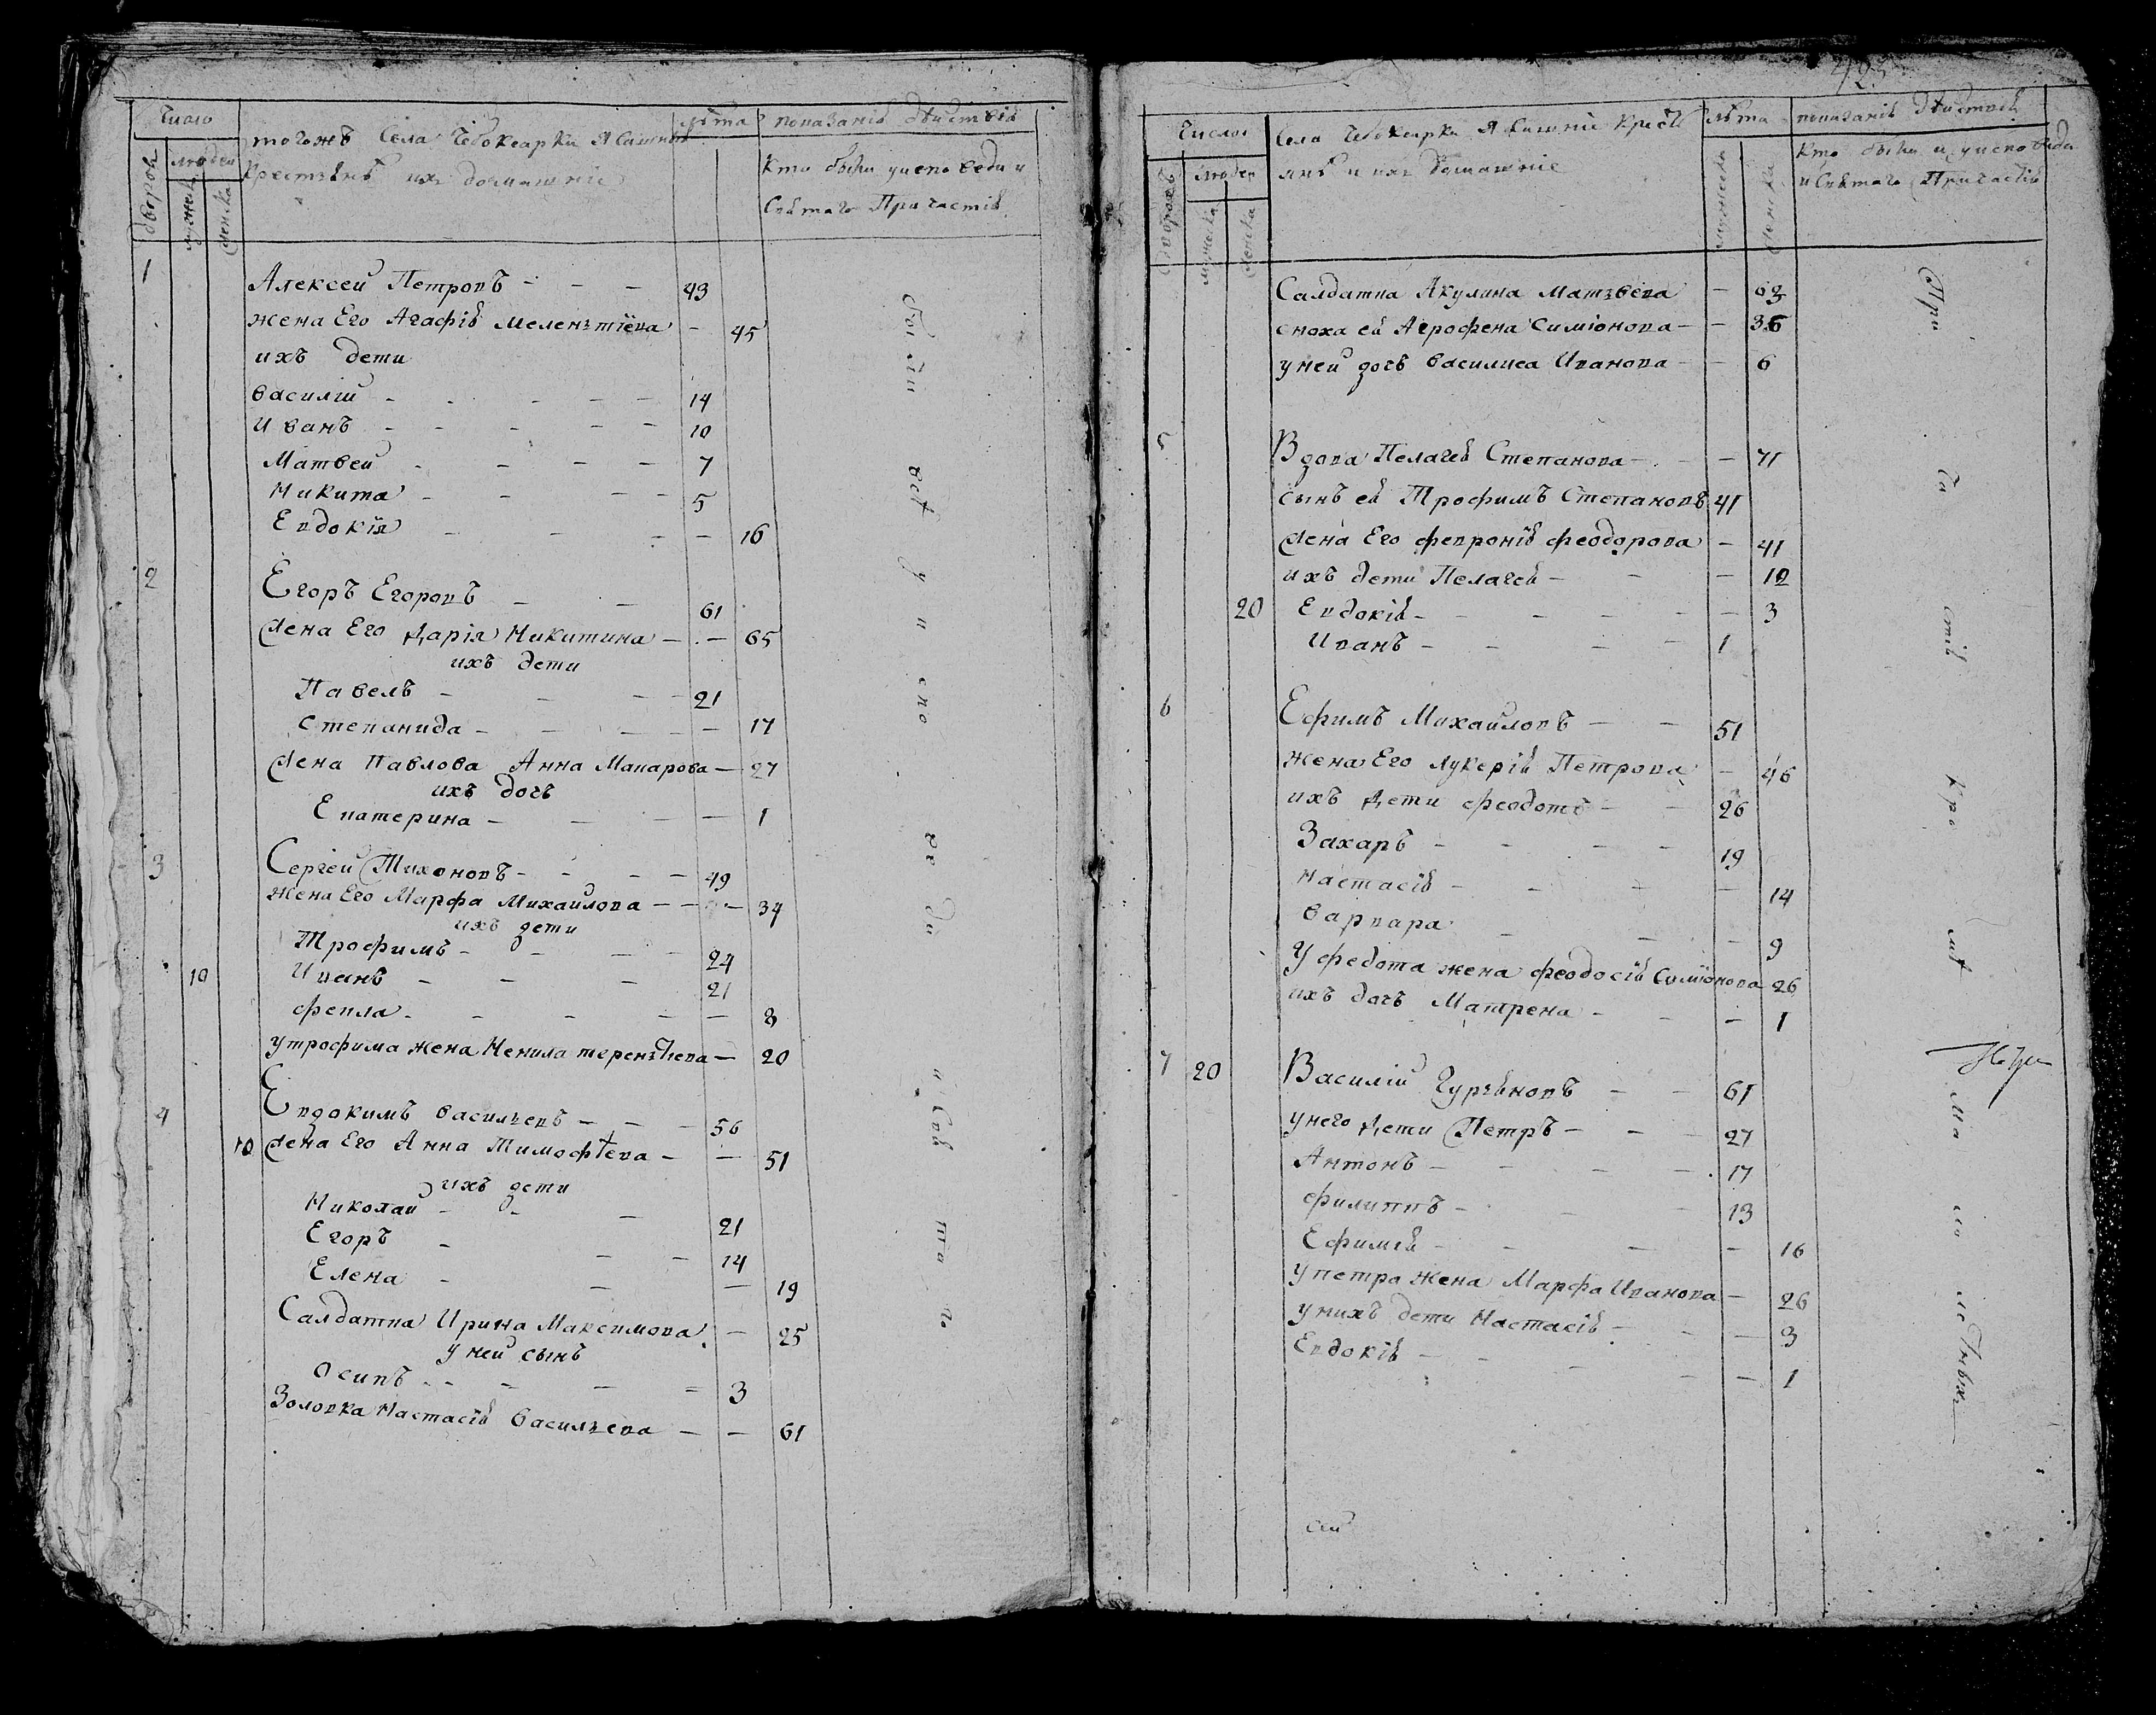 Число
тогожъ Села Чебоксарки Ясашныхъ
лѣта
показаніе дѣйствій
дворовъ
людей
мужеска
женска
крестьянъ ихъ домашніе
Кто были у исповеди и
Святаго Причастія
1
Алексей Петровъ - - - 43
жена Его Агафія Мелентіева - 45
ихъ дети
Василій - - - - - 14
Иванъ - - - - - 10
Матвей - - - - 7
Никита - - - - 5
Евдокія - - - - 16
2
Егоръ Егоровъ - - 61
жена Его Дарія Никитина - - 65
ихъ дети
Павелъ - - - - 21
Степанида - - - - - 17
жена Павлова Анна Макарова - 27
ихъ дочь
Екатерина - - - - 1
3
Сергей Тихоновъ - - - - 49
жена Его Марфа Михайлова - - - 34
ихъ дети
Трофимъ - - - - 24
10 Иванъ - - - 21
Фекла - - - - - 8
у трофима жена Ненила терентьева - 20
4
Евдокимъ Васильевъ - - - 56
10 жена Его Анна Тимофѣева - - 51
ихъ дети
Николай - - - 21
Егоръ - - - 14
Елена - - - 19
Салдатка Ирина Максимова - 25
у ней сынъ
Осипъ - - - - - 3
Золовка Настасія Васильева - - 61
были всѣ у испо веди и Свя та го
Число
Села Чебоксарки Ясашніе Кресть
лѣта
показаніе дѣйствій
дворовъ
людей
мужеска
женска
янѣ и ихъ домашніе
мужеска
женска
Кто были и у исповеди
и Святаго Причастія
Салдатка Акулина Матвѣева - 63
сноха ей Агрофена Симіонова - - 36
у ней дочь Василиса Иванова - - 6
5
Вдова Пелагея Степанова - - - 71
сынъ ей Трофимъ Степановъ 41
жена Его Февронія Феодорова - 41
ихъ дети Пелагея - - - 12
20 Евдокія - - - - - - 3
Иванъ - - - - 1
6
Ефимъ Михайловъ - - 51
жена Его Лукерія Петрова - 46
ихъ дети Феодотъ - - 26
Захаръ - - - - 19
Настасія - - - - 14
Варвара - - - 9
У Федота жена Феодосія Симіонова 26
ихъ дочь Матрена - - - 1
7 20
Василій Гурьяновъ - - 61
у него дети Петръ - - - 27
Антонъ - - - - 17
Филиппъ - - - 13
Ефимія - - - - 16
у петра жена Марфа Иванова - 26
у нихъ дети Настасія - - - 3
Евдокія - - - - - 1
При ча стія кро мѣ ма ло летныхъ